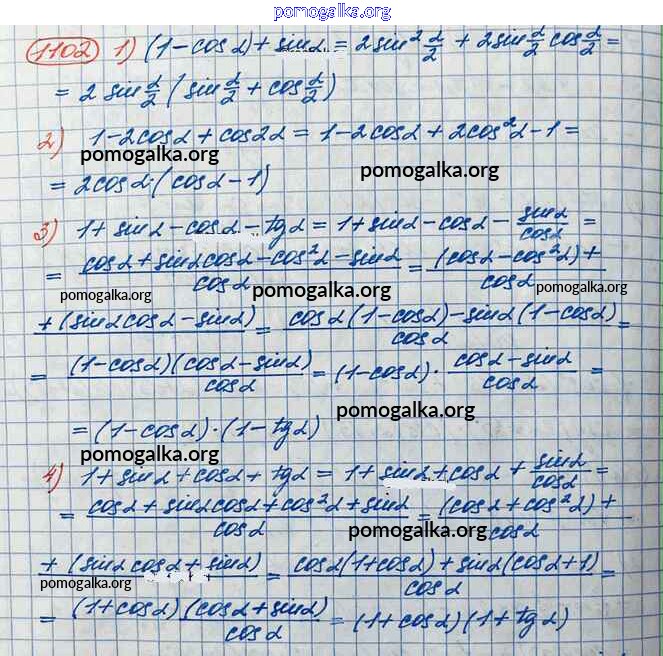 pomogalka.org
1102 1) (1-cosα)+sinα = 2sin² α/2 + 2sin α/2 cos α/2 =
= 2 sin α/2 (sin α/2 + cos α/2)
2) 1-2cosα+cos2α = 1-2cosα+2cos²α-1 =
pomogalka.org pomogalka.org
= 2cosα·(cosα-1)
3) 1+sinα-cosα-tgα = 1+sinα-cosα- sinα/cosα =
= (cosα+sinαcosα-cos²α-sinα)/cosα = (cosα-cos²α)+ /cosα
pomogalka.org pomogalka.org pomogalka.org
+(sinαcosα-sinα) = (cosα(1-cosα)-sinα(1-cosα))/cosα =
= (1-cosα)(cosα-sinα)/cosα = (1-cosα)· (cosα-sinα)/cosα =
pomogalka.org
= (1-cosα)·(1-tgα)
pomogalka.org
4) 1+sinα+cosα+tgα = 1+sinα+cosα+ sinα/cosα =
= (cosα+sinαcosα+cos²α+sinα)/cosα = (cosα+cos²α)+ /cosα
pomogalka.org
+(sinαcosα+sinα) = (cosα(1+cosα)+sinα(cosα+1))/cosα =
pomogalka.org
= (1+cosα)(cosα+sinα)/cosα = (1+cosα)(1+tgα)
pomogalka.org